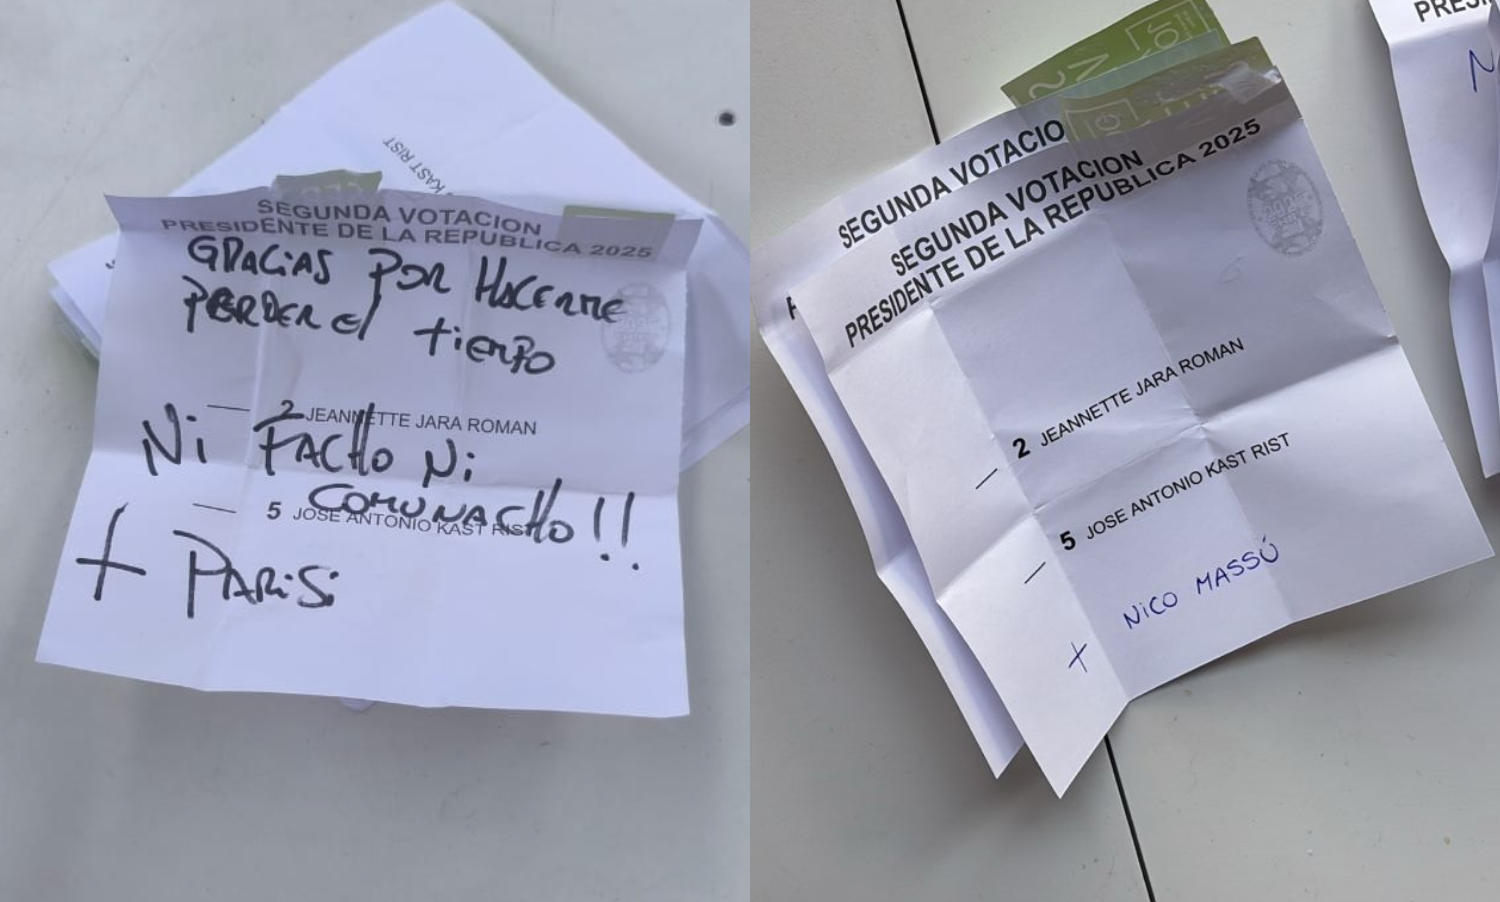 KAST RIST
SEGUNDA VOTACION
PRESIDENTE DE LA REPUBLICA 2025
GRACIAS POR HACERME
PERDER El tiempo
2 JEANNETTE JARA ROMAN
Ni FACHO Ni
COMUNACHO!!
5 JOSE ANTONIO KAST RIST
+ PARiSi
SEGUNDA VOTACIO
SEGUNDA VOTACION
PRESIDENTE DE LA REPUBLICA 2025
2025
2 JEANNETTE JARA ROMAN
5 JOSE ANTONIO KAST RIST
+ NiCO MASSÚ
PRESI
N